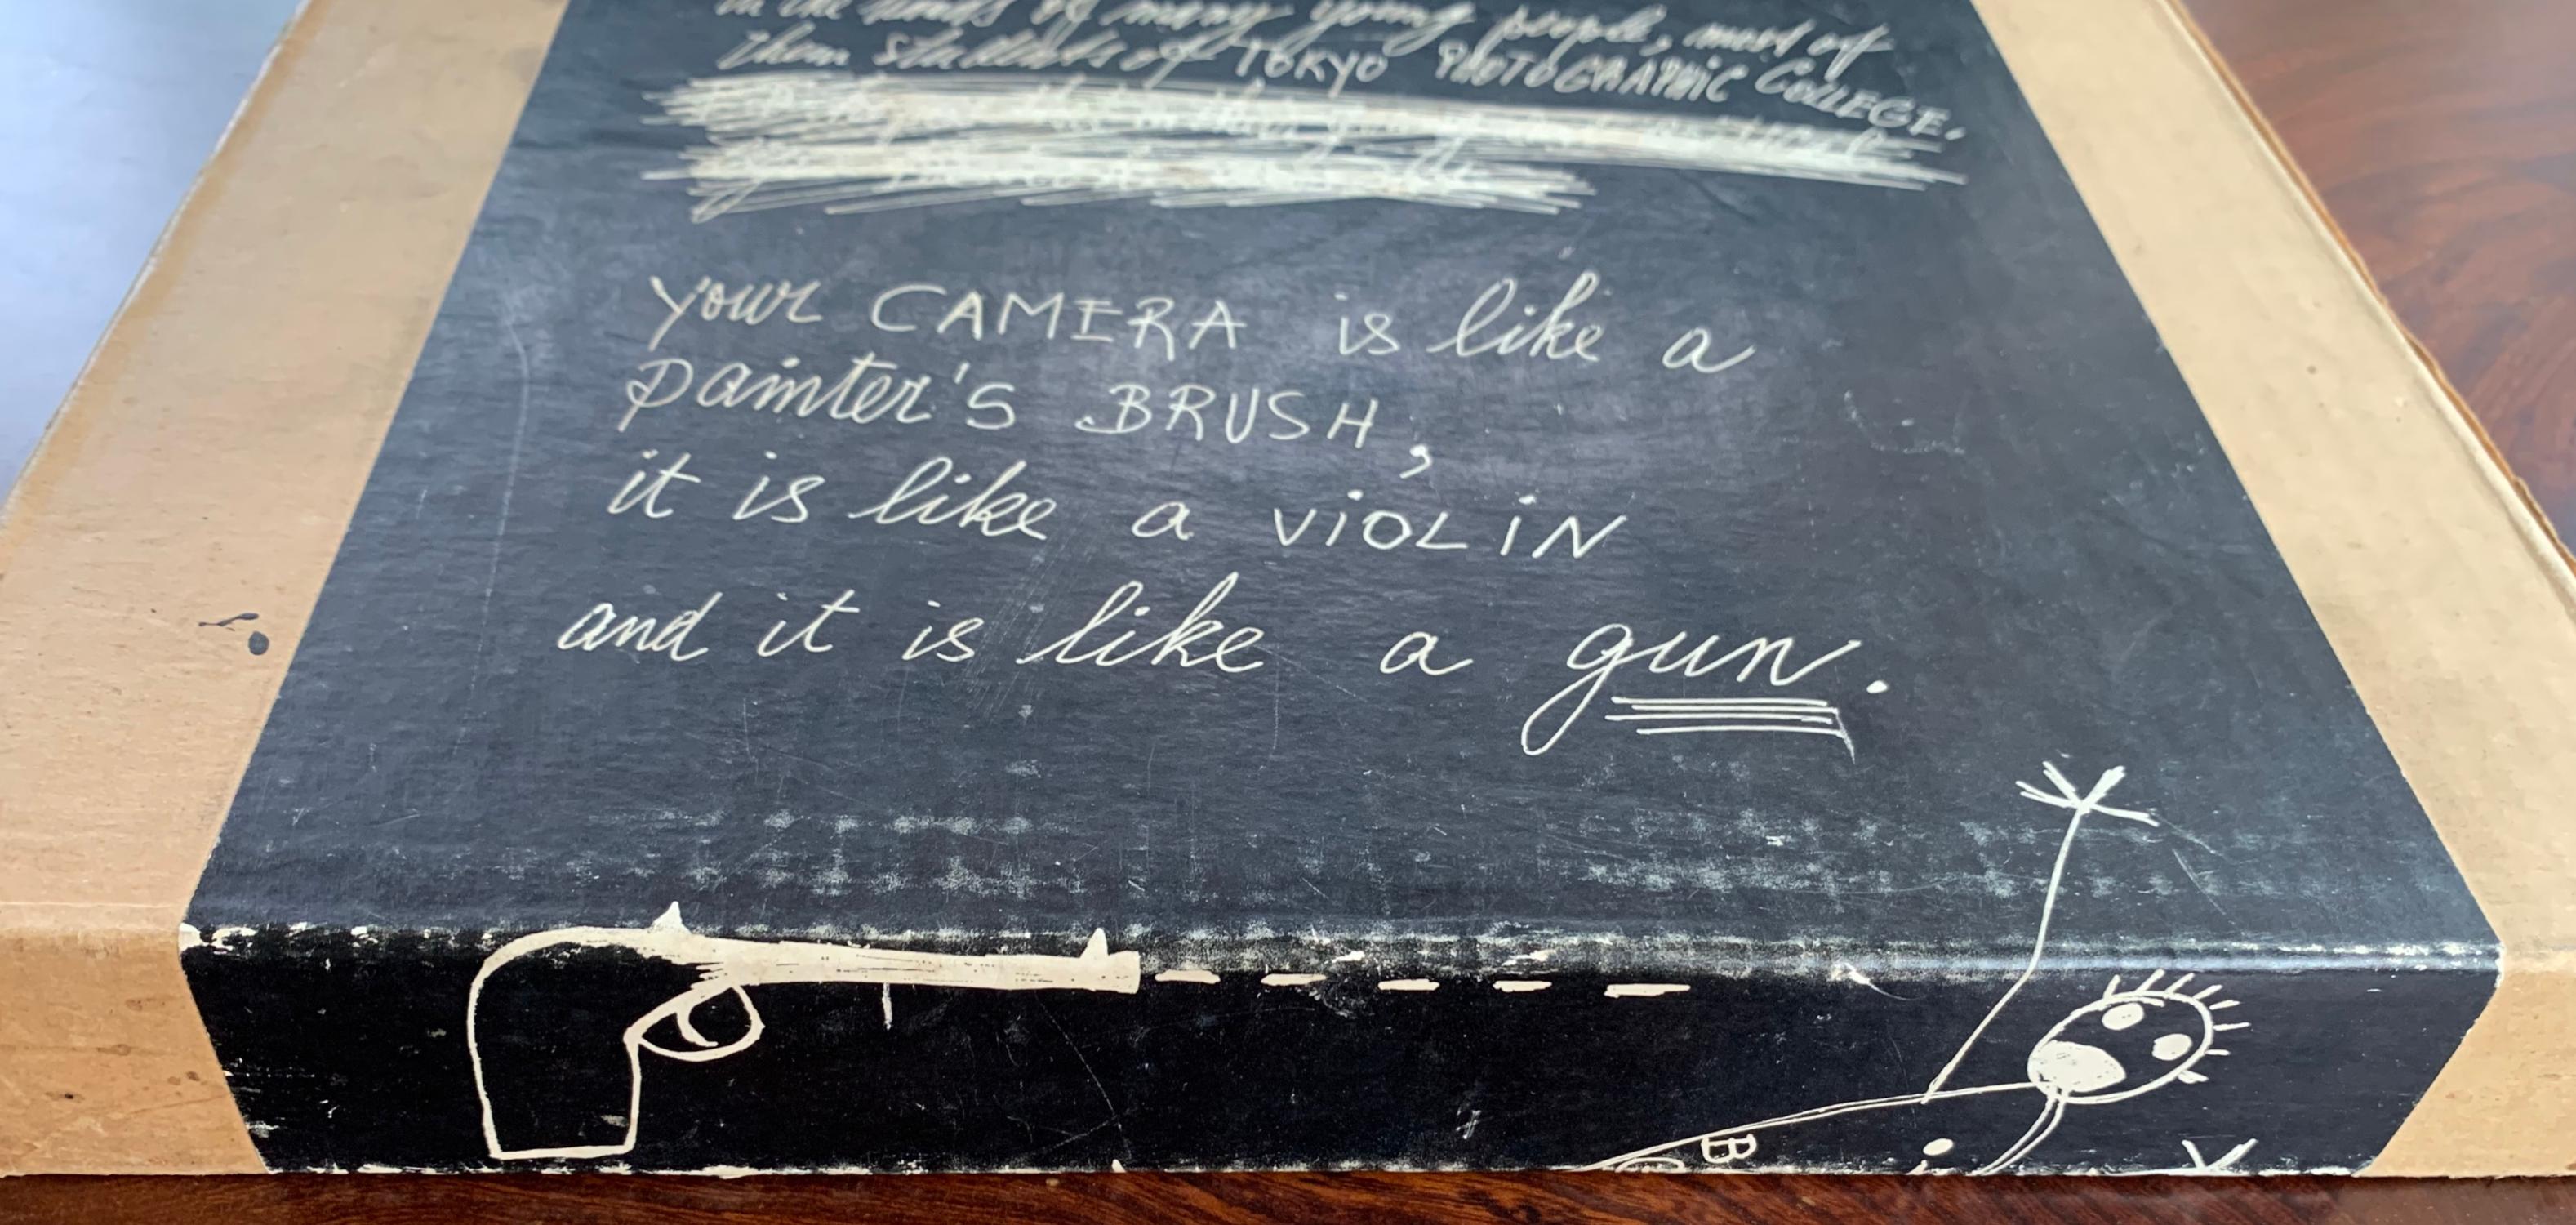 in the hands of many young people, most of
them students of TOKYO PHOTOGRAPHIC COLLEGE.
your CAMERA is like a
painter's BRUSH,
it is like a ViOLiN
and it is like a gun.
B